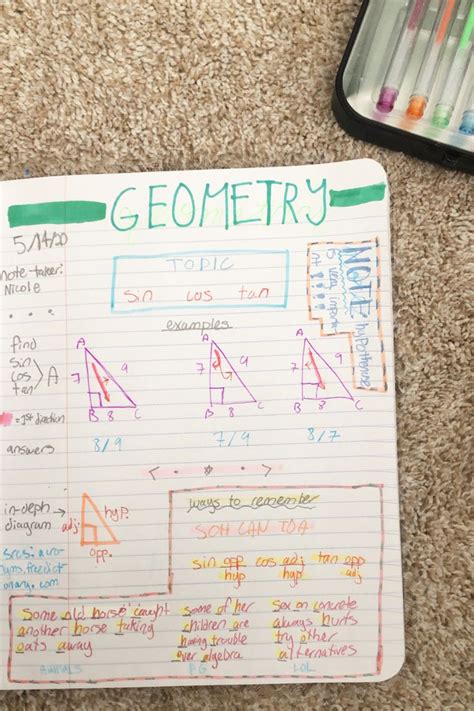 GEOMETRY
5/14/20
note-taker:
Nicole
TOPIC
sin cos tan
NOTE
hypotenuse
is very import
nt
examples
find
sin
cos
tan
A
A
7 9
B 8 C
A
7 9
C
A
7 9
B 8 C
= 1st direction
answers
8/9 7/9 8/7
in-deph
diagram
adj. hyp.
opp.
ways to remember
SOH CAN TOA
sin opp hyp cos adj hyp tan opp adj
Some old horse caught
another horse taking
oats away
some of her
children are
having trouble
over algebra
sex on concrete
always hurts
try other
alternatives
ANIMALS PG LOL